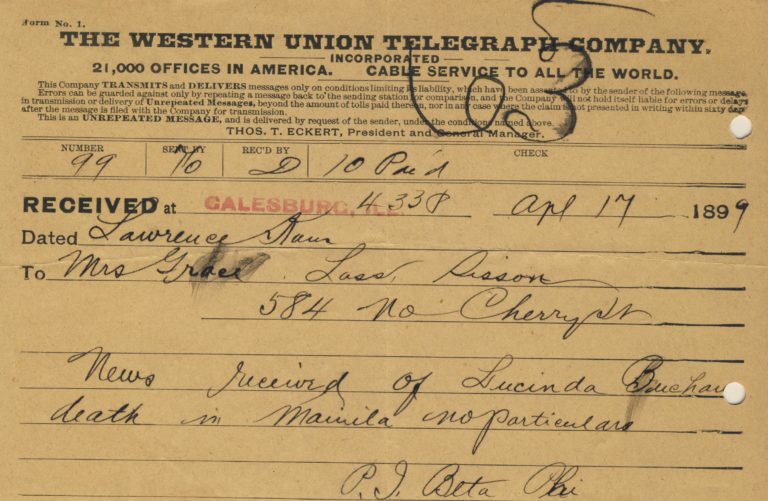 Form No. 1.
THE WESTERN UNION TELEGRAPH COMPANY.
INCORPORATED
21,000 OFFICES IN AMERICA. CABLE SERVICE TO ALL THE WORLD.
This Company TRANSMITS and DELIVERS messages only on conditions limiting its liability, which have been assented to by the sender of the following message.
Errors can be guarded against only by repeating a message back to the sending station for comparison, and the Company will not hold itself liable for errors or delays
in transmission or delivery of Unrepeated Messages, beyond the amount of tolls paid thereon, nor in any case where the claim is not presented in writing within sixty days
after the message is filed with the Company for transmission.
This is an UNREPEATED MESSAGE, and is delivered by request of the sender, under the conditions named above.
THOS. T. ECKERT, President and General Manager.
NUMBER SENT BY REC'D BY CHECK
99 D 10 Paid
RECEIVED at GALESBURG, ILL. 433P Apl 17 1899
Dated Lawrence Kans
To Mrs Grace Lass. Sisson
584 No Cherry St
News received of Lucinda Buchan
death in Manila no particulars
P. I. Beta Phi